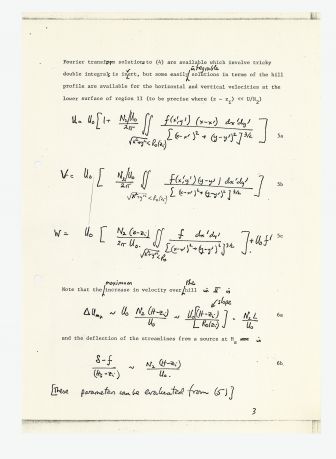 Fourier transforms solutions to (4) are available which involve tricky
integrable
double integrals is inert, but some easily solutions in terms of the hill
profile are available for the horizontal and vertical velocities at the
lower surface of region II (to be precise where (z - z_i) << U/N_2)
U = U_0 [ 1 + N_2/U_0 / 2π ∬ f(x',y') (x-x') dx'dy' / [(x-x')^2 + (y-y')^2]^{3/2} ] 5a
V = U_0 [ N_2/U_0 / 2π ∬ f(x'y') (y-y') dx'dy' / [(x-x')^2 + (y-y')^2]^{3/2} ] 5b
W = U_0 [ N_2 (z-z_i) / 2π U_0 ∬ f dx'dy' / [(x-x')^2 + (y-y')^2]^{3/2} ] + U_0 f' 5c
maximum the
Note that the increase in velocity over hill in II is
slope
Δ U_mx ~ U_0 N_2 (H-z_i) / U_0 ~ U_0 (H-z_i) / [R_0(z_i)] · N_2 L / U_0 6a
and the deflection of the streamlines from a source at H_s is
δ - f / (H_s - z_i) ~ N_2 (H-z_i) / U_0. 6b
[These parameters can be evaluated from (5)]
3